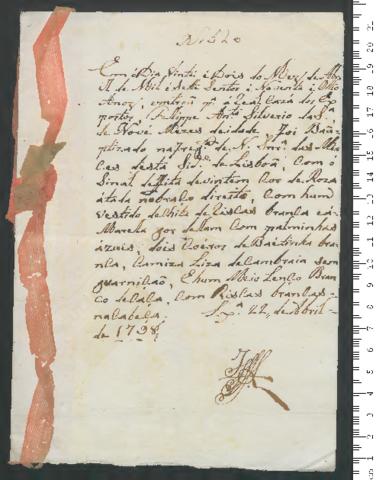 Em o Dia Vinte e Dois do Mez de Abr
il de Mil e Sette Sentos e Noventa e Oito
Anos, entrou pª a Real Caza dos Ex
postos, Filippe Antº Silverio das
de Nove Mezes de idade, Foi Bau
ptizado na Freg.ª de N. Snrª das Mer
ces desta Sid.e de Lisboa, Com o
Sinal de fita de vintem Cor de Roza
atada no braço direito, Com hum
Vestido de Chita de Riscas branca e a
Marela por dam Com palminhas
azuis, dois Coeiros de Baetinha bra
nca, Camiza Liza de Cambraia sem
guarniçaõ, E hum Meio Lenço Bran
co de Caça, Com Riscas brancas
na Cabeça. Lxª 22, de Abril
de 1798